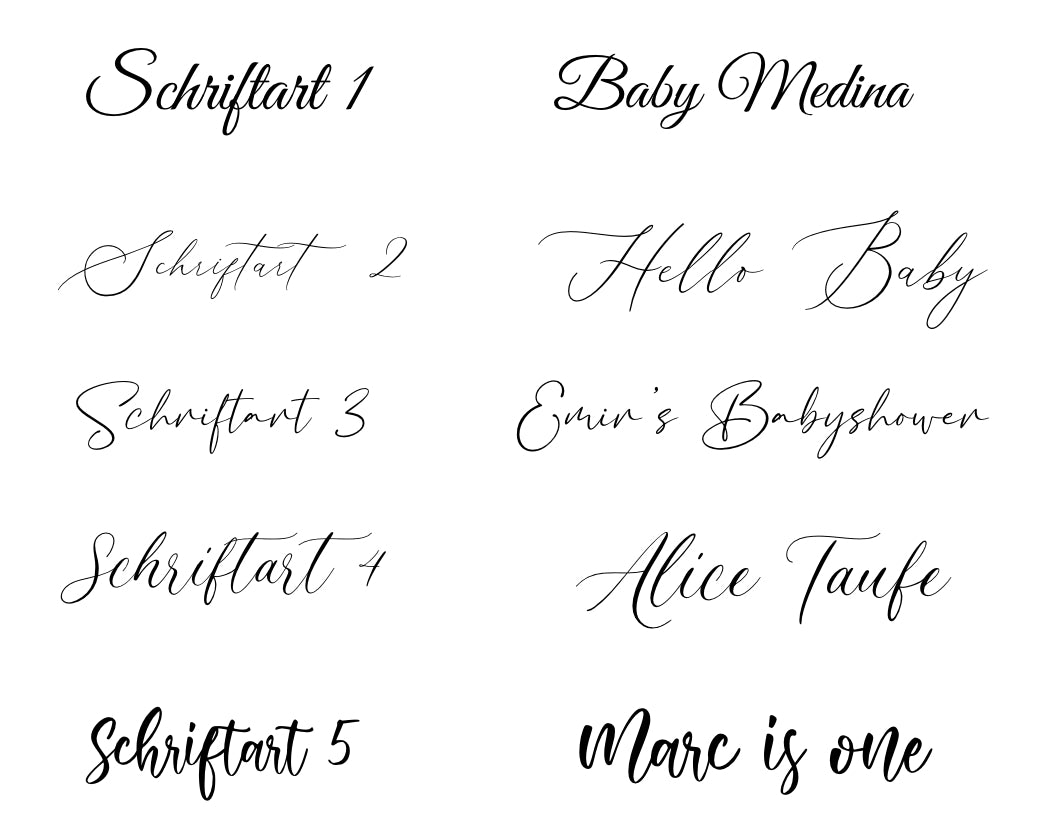 Schriftart 1 Baby Medina
Schriftart 2 Hello Baby
Schriftart 3 Emir's Babyshower
Schriftart 4 Alice Taufe
Schriftart 5 Marc is one